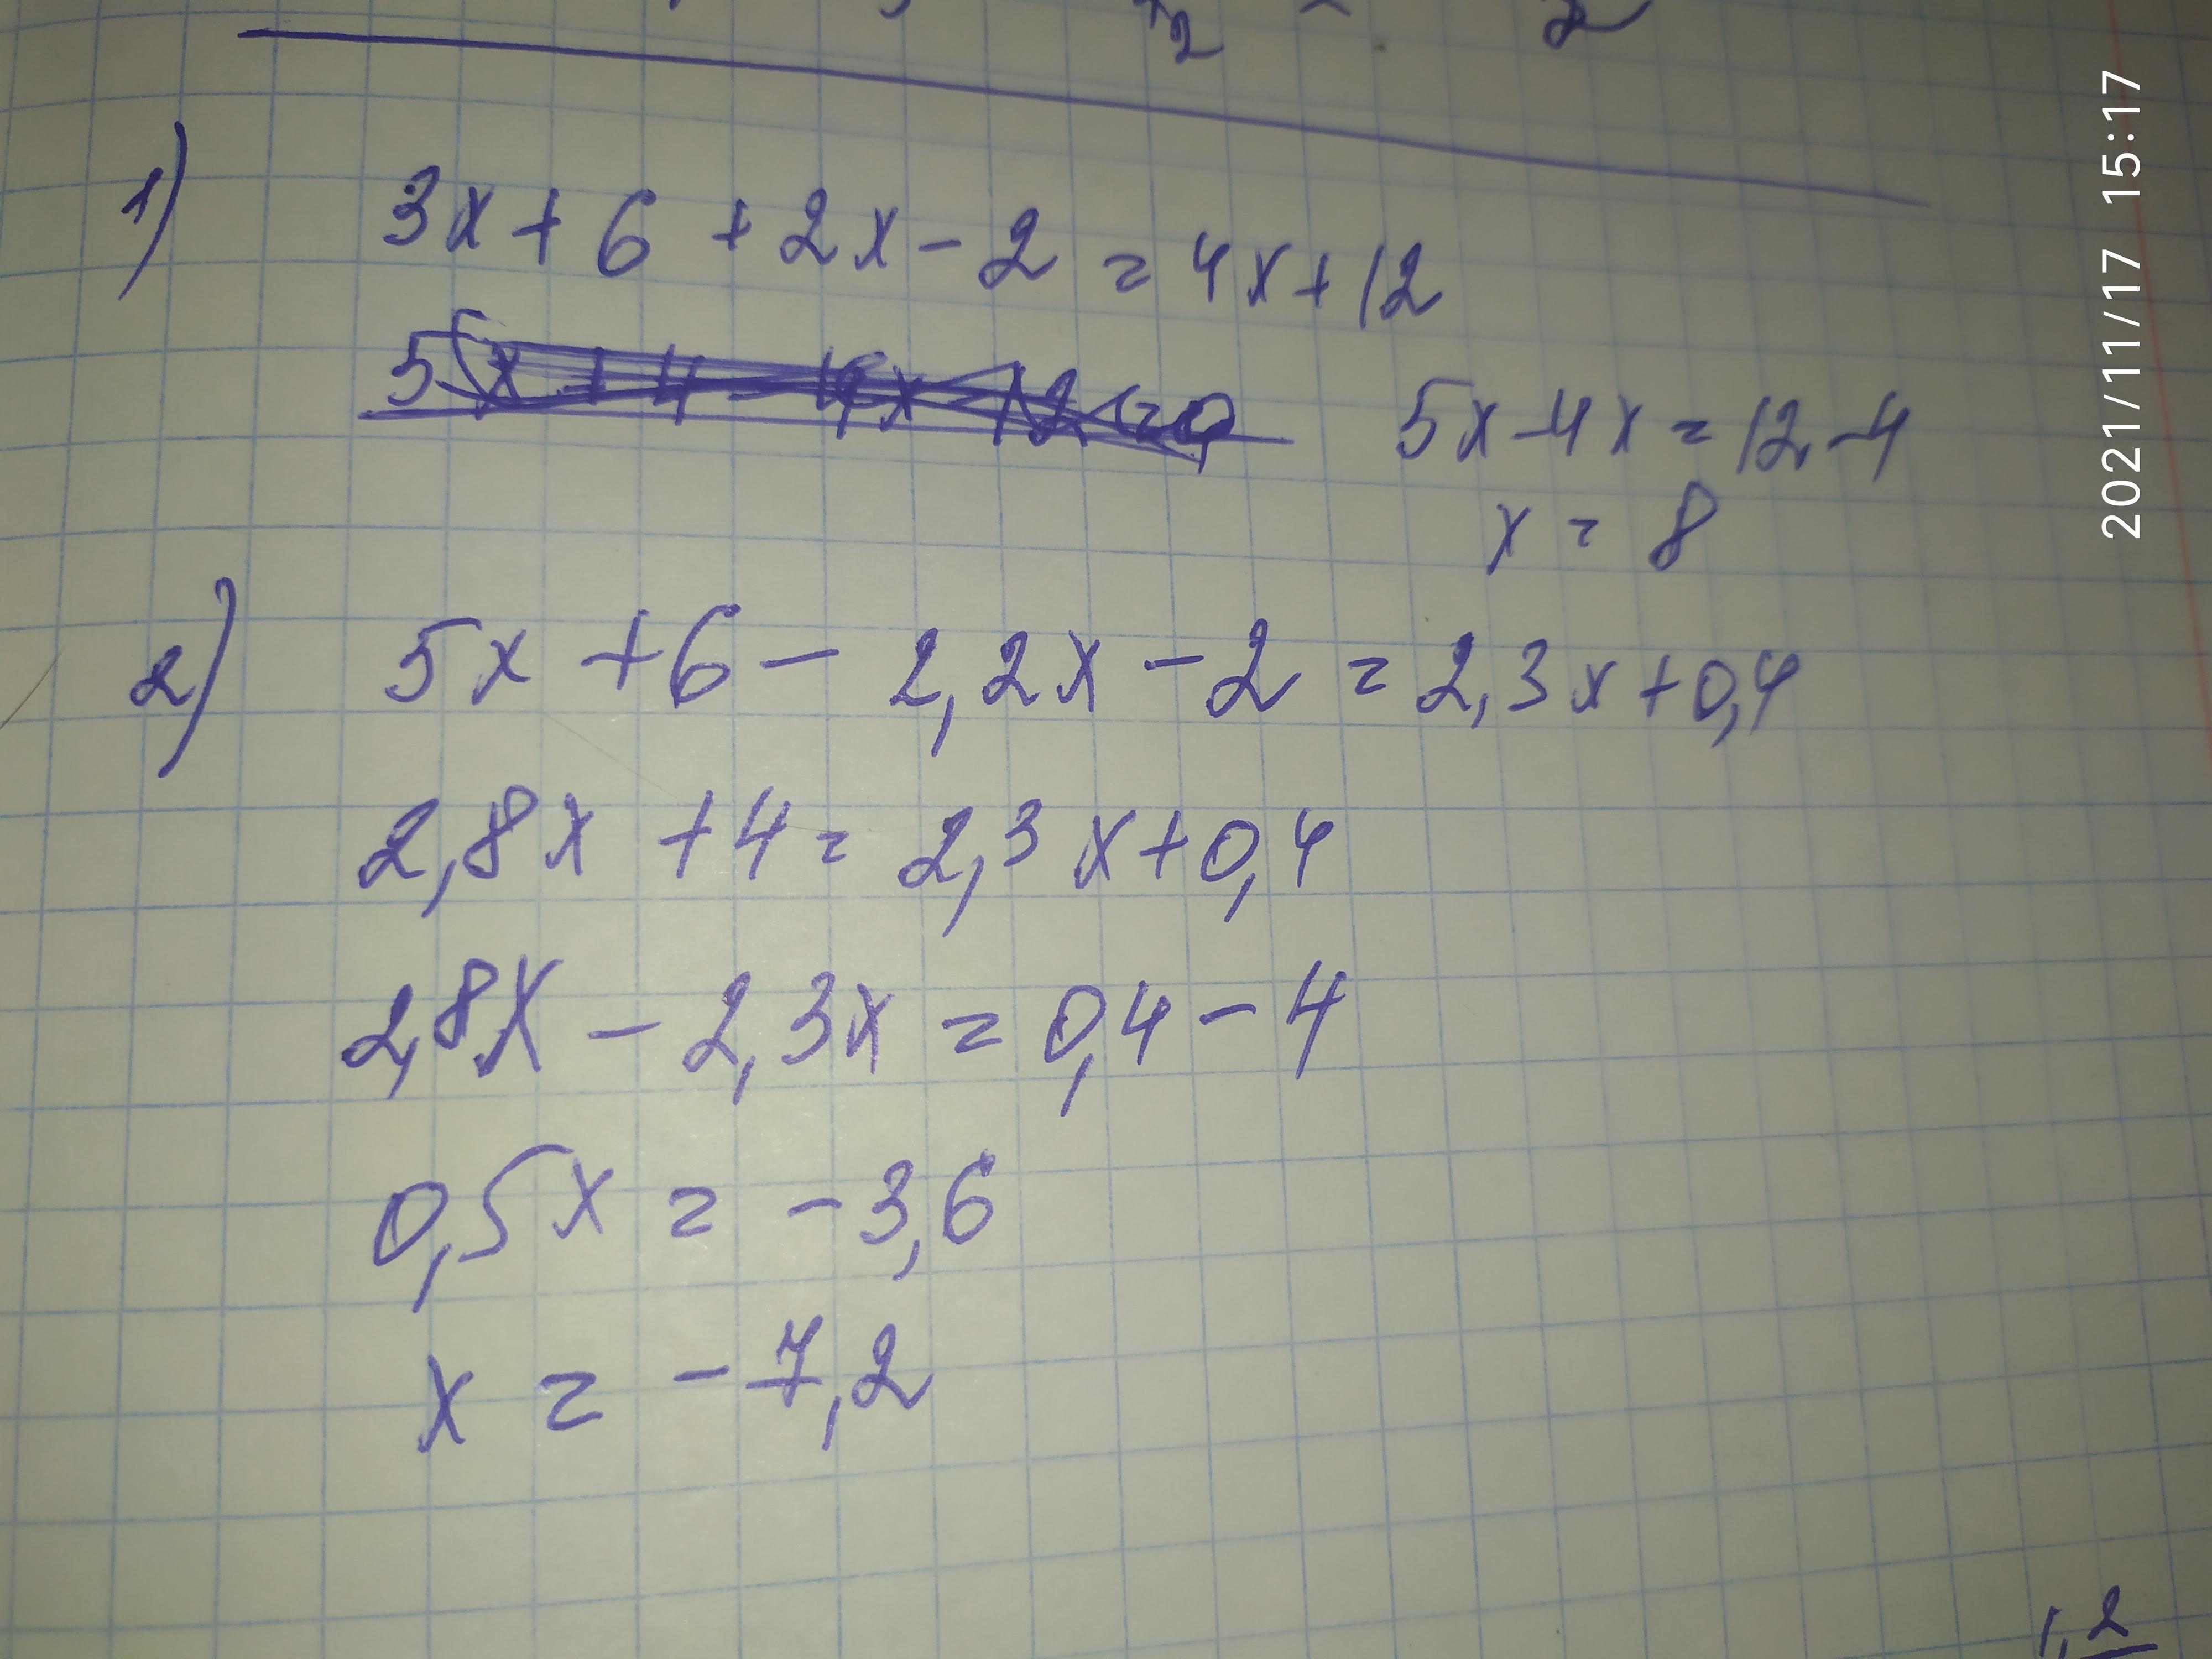 2 2
1) 3x + 6 + 2x - 2 = 4x + 12
5x + 4 - 4x - 12 = 0
5x - 4x = 12 - 4
x = 8
2) 5x + 6 - 2,2x - 2 = 2,3x + 0,4
2,8x + 4 = 2,3x + 0,4
2,8x - 2,3x = 0,4 - 4
0,5x = -3,6
x = -7,2
1,2
2021/11/17 15:17